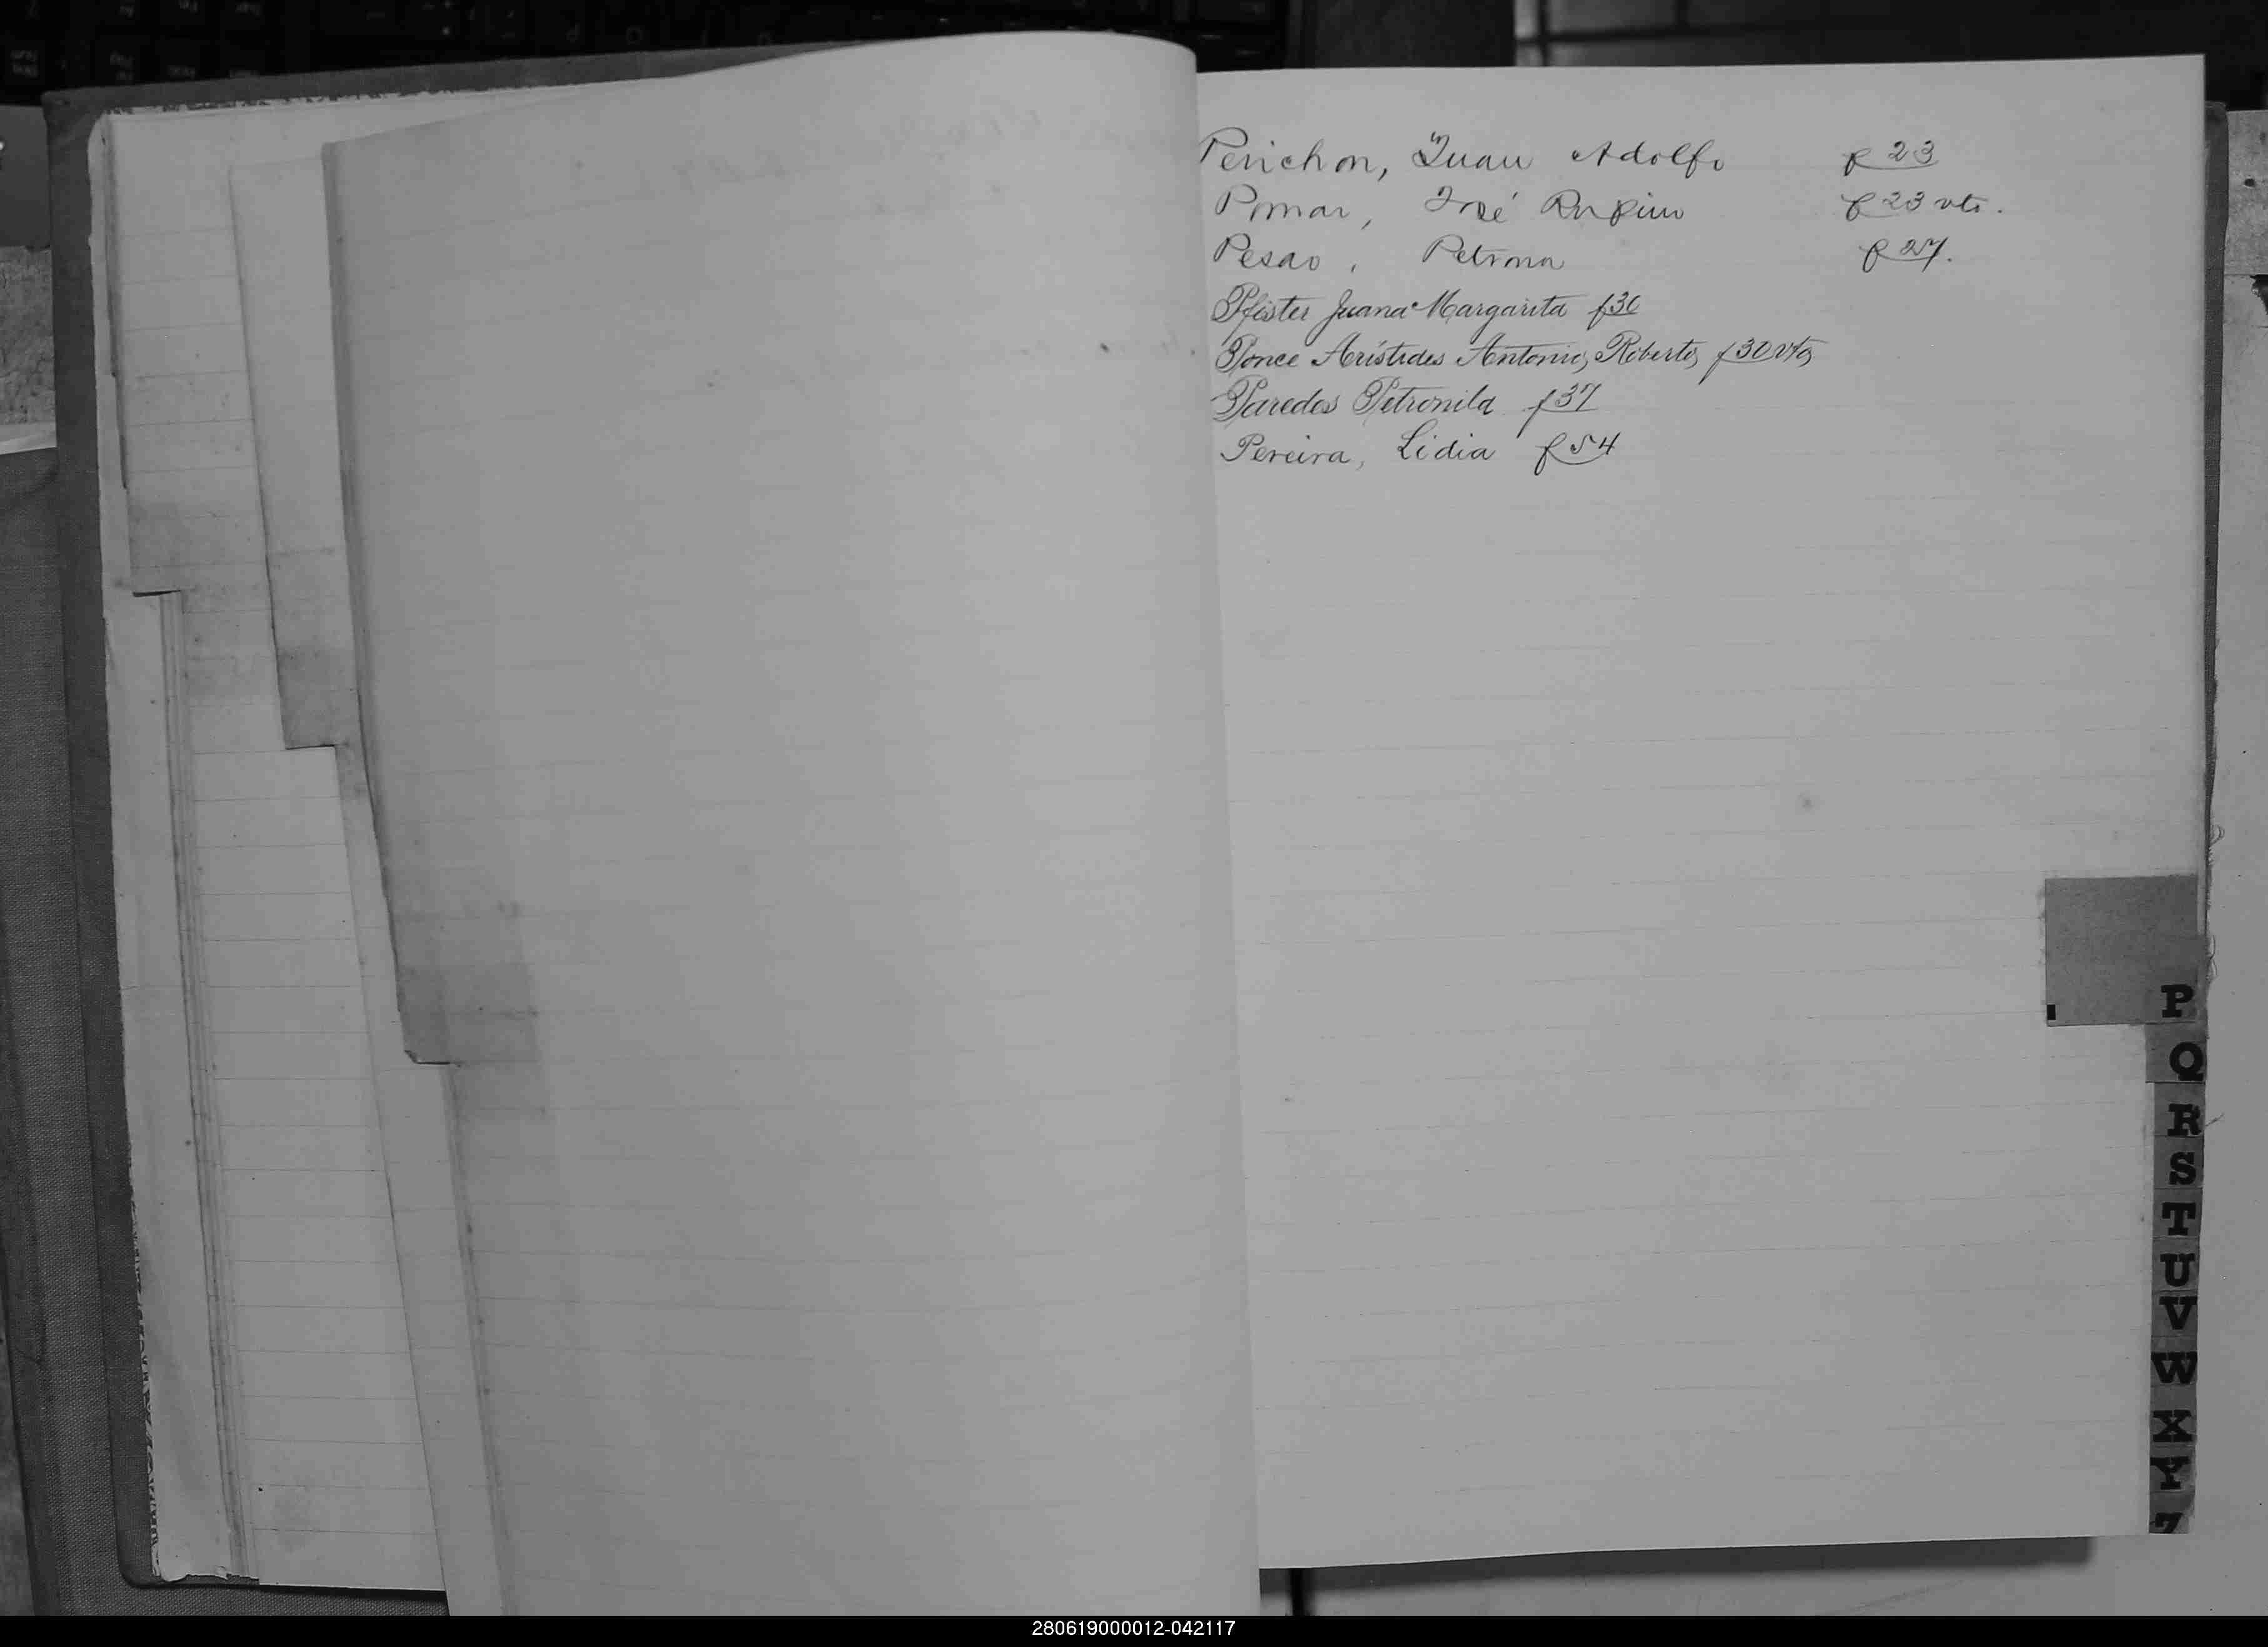 Perichon, Juan Adolfo f 23
Pomar, José Rufino f 23 vto.
Pesao, Petrona f 27.
Pfister Juana Margarita f 30
Ponce Arístides Antonio, Roberto, f 30 vto,
Paredes Petronila f 37
Pereira, Lidia f 54
P
Q
R
S
T
U
V
W
X
Y
Z
280619000012-042117